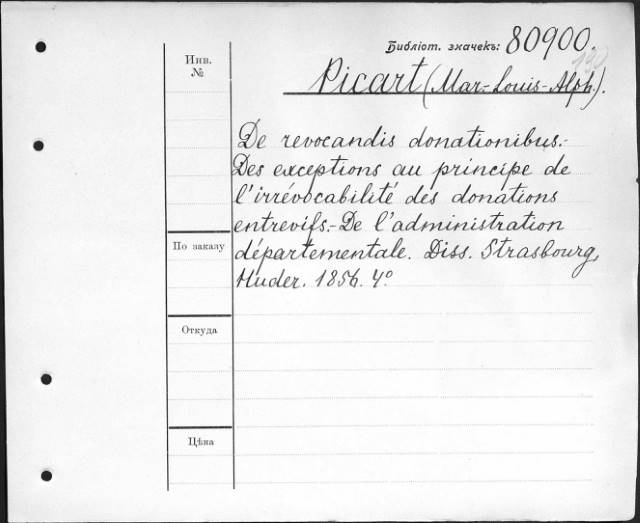 Библіот. значекъ: 80900.
190
Инв.
№
Picart (Mar-Louis-Alph.).
De revocandis donationibus.-
Des exceptions au principe de
l'irrévocabilité des donations
entrevifs.- De l'administration
По заказу
départementale. Diss. Strasbourg,
Huder. 1856. 4º.
Откуда
Цѣна